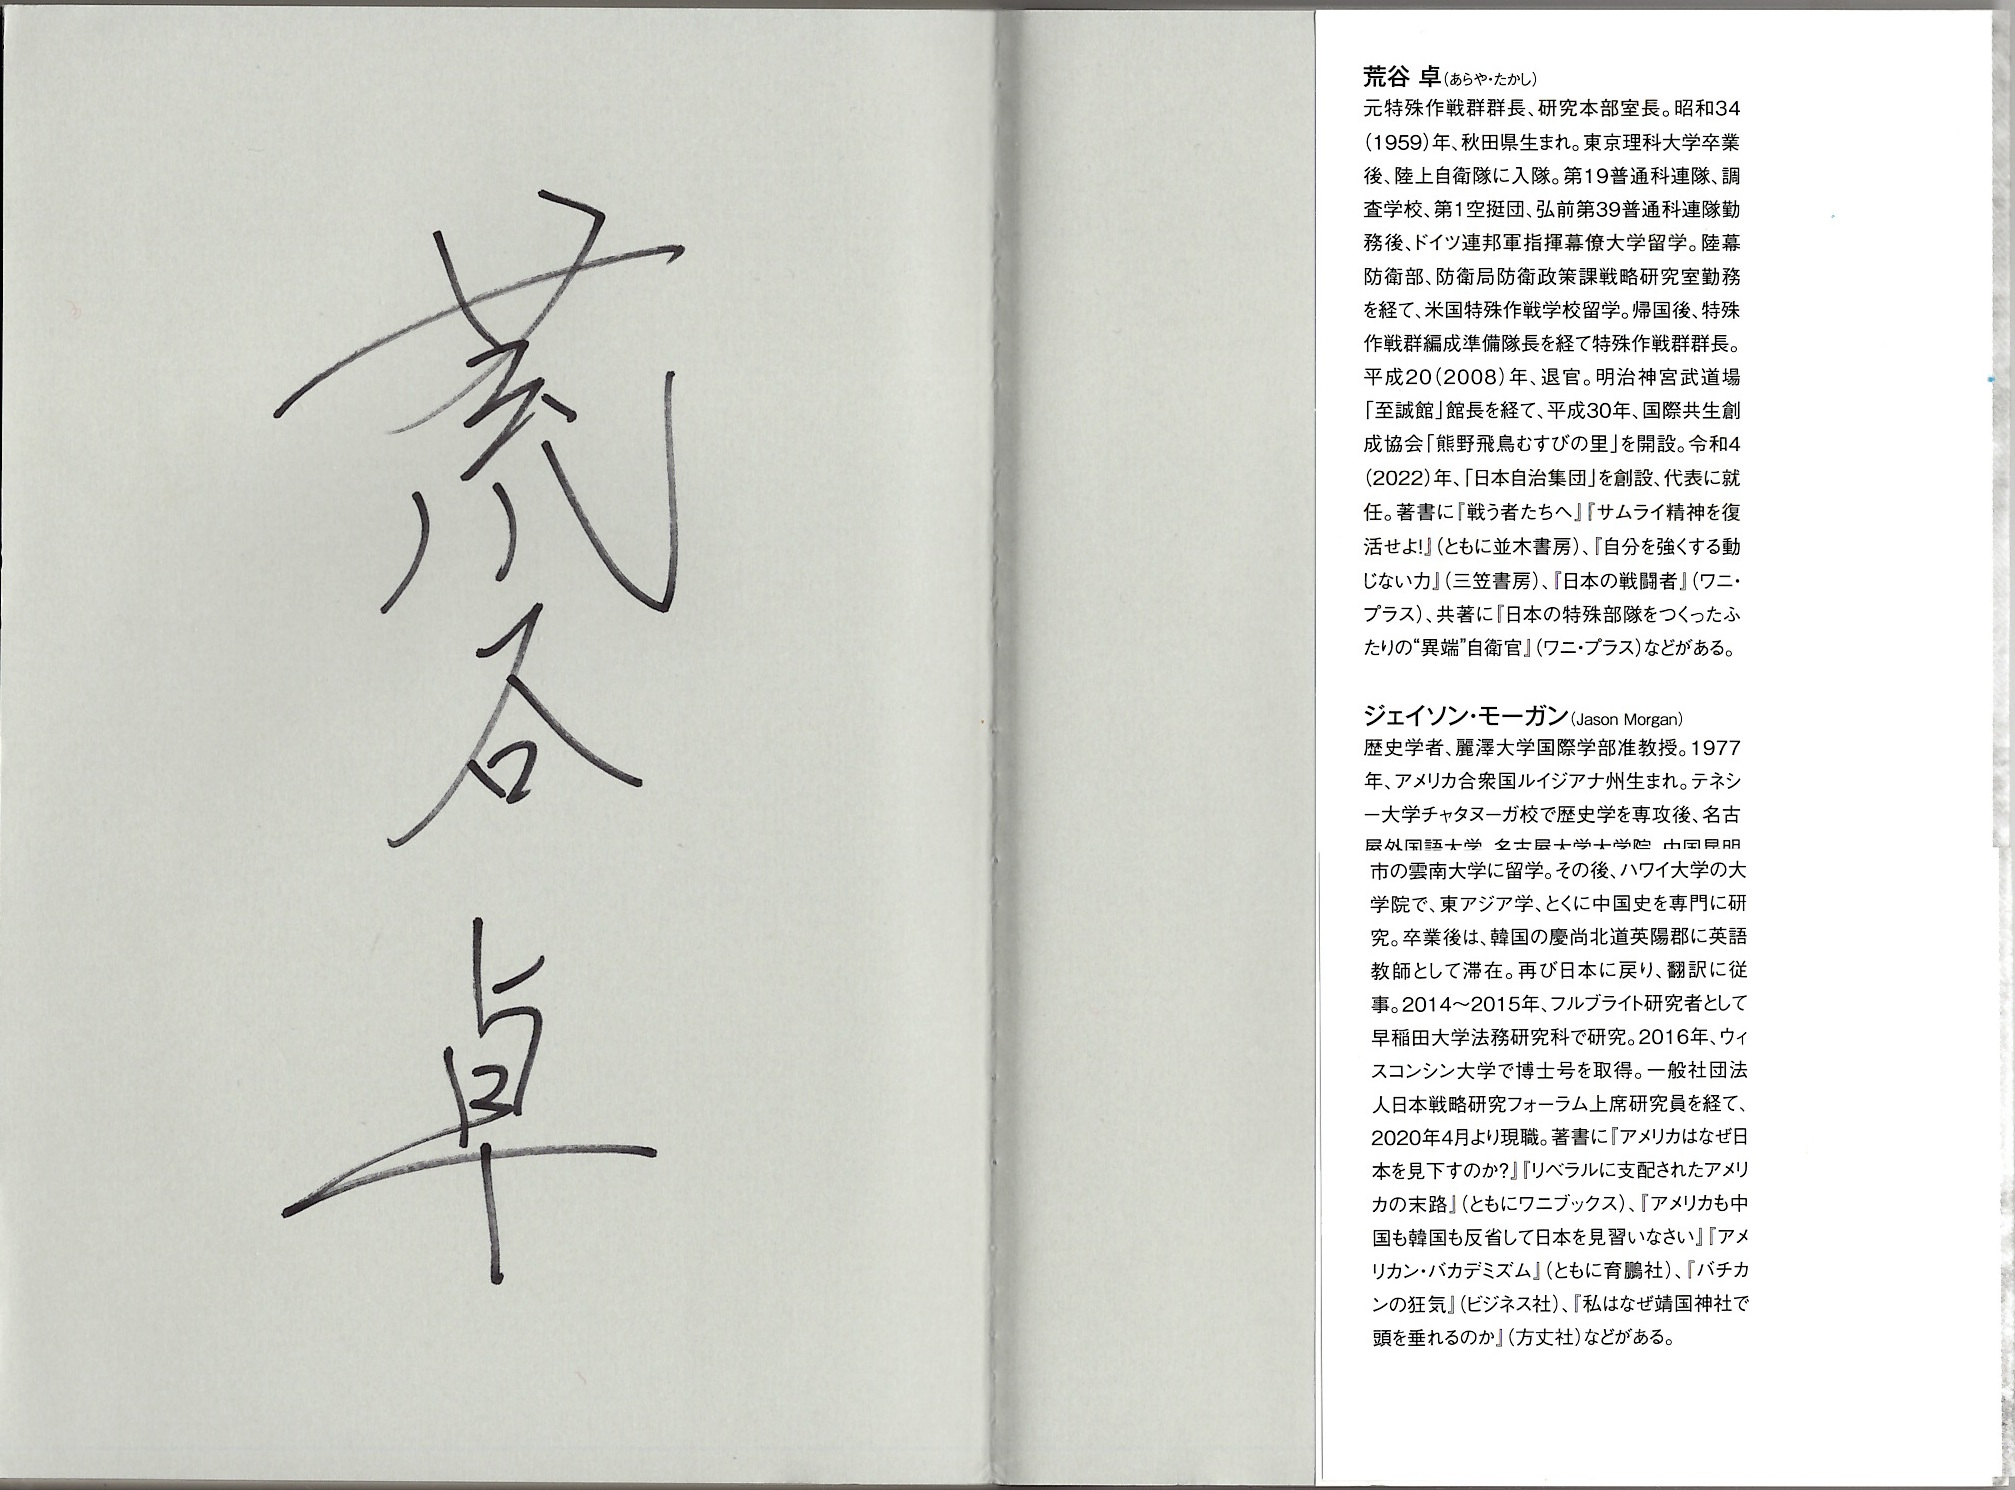 荒谷 卓
荒谷 卓(あらや・たかし)
元特殊作戦群群長、研究本部室長。昭和34
(1959)年、秋田県生まれ。東京理科大学卒業
後、陸上自衛隊に入隊。第19普通科連隊、調
査学校、第1空挺団、弘前第39普通科連隊勤
務後、ドイツ連邦軍指揮幕僚大学留学。陸幕
防衛部、防衛局防衛政策課戦略研究室勤務
を経て、米国特殊作戦学校留学。帰国後、特殊
作戦群編成準備隊長を経て特殊作戦群群長。
平成20(2008)年、退官。明治神宮武道場
「至誠館」館長を経て、平成30年、国際共生創
成協会「熊野飛鳥むすびの里」を開設。令和4
(2022)年、「日本自治集団」を創設、代表に就
任。著書に『戦う者たちへ』『サムライ精神を復
活せよ!』(ともに並木書房)、『自分を強くする動
じない力』(三笠書房)、『日本の戦闘者』(ワニ・
プラス)、共著に『日本の特殊部隊をつくったふ
たりの“異端”自衛官』(ワニ・プラス)などがある。
ジェイソン・モーガン(Jason Morgan)
歴史学者、麗澤大学国際学部准教授。1977
年、アメリカ合衆国ルイジアナ州生まれ。テネシ
ー大学チャタヌーガ校で歴史学を専攻後、名古
屋外国語大学、名古屋大学大学院、中国昆明
市の雲南大学に留学。その後、ハワイ大学の大
学院で、東アジア学、とくに中国史を専門に研
究。卒業後は、韓国の慶尚北道英陽郡に英語
教師として滞在。再び日本に戻り、翻訳に従
事。2014〜2015年、フルブライト研究者として
早稲田大学法務研究科で研究。2016年、ウィ
スコンシン大学で博士号を取得。一般社団法
人日本戦略研究フォーラム上席研究員を経て、
2020年4月より現職。著書に『アメリカはなぜ日
本を見下すのか?』『リベラルに支配されたアメリ
カの末路』(ともにワニブックス)、『アメリカも中
国も韓国も反省して日本を見習いなさい』『アメ
リカン・バカデミズム』(ともに育鵬社)、『バチカ
ンの狂気』(ビジネス社)、『私はなぜ靖国神社で
頭を垂れるのか』(方丈社)などがある。